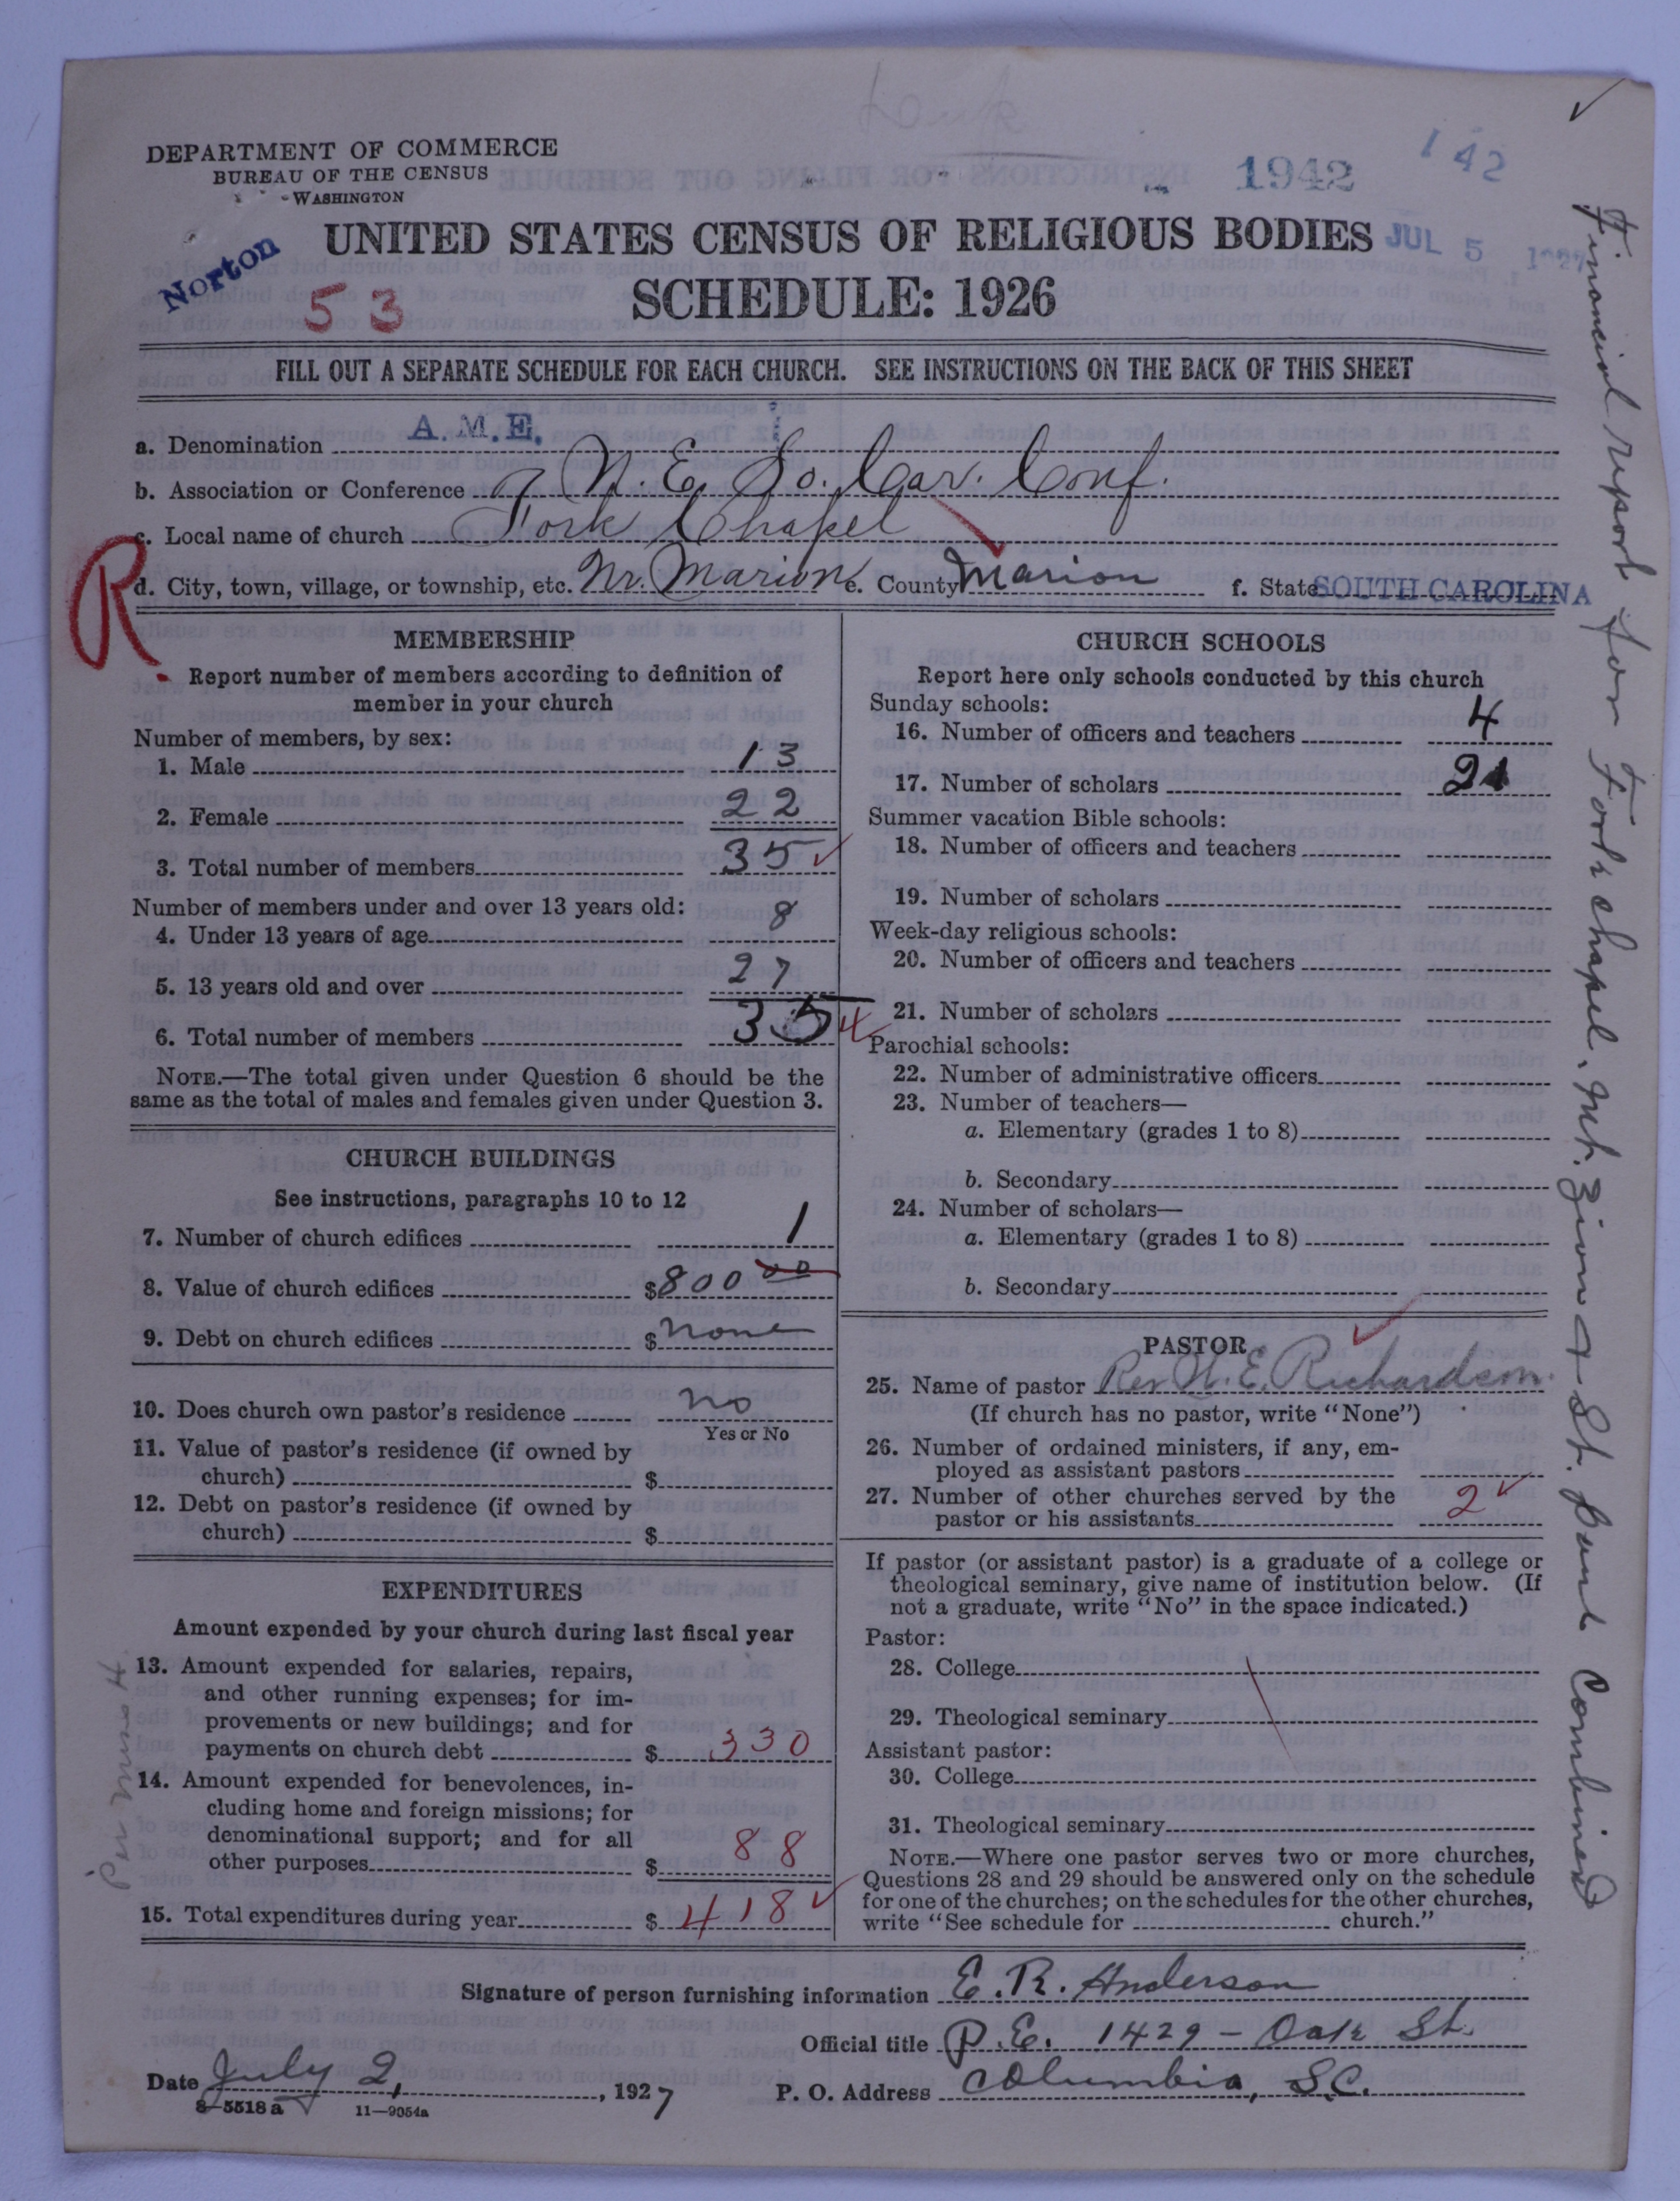 DEPARTMENT OF COMMERCE
BUREAU OF THE CENSUS
WASHINGTON
1942
142
UNITED STATES CENSUS OF RELIGIOUS BODIES
JUL 5 1927
Norton
53
SCHEDULE: 1926
FILL OUT A SEPARATE SCHEDULE FOR EACH CHURCH. SEE INSTRUCTIONS ON THE BACK OF THIS SHEET
a. Denomination A.M.E.
b. Association or Conference N.E. So. Car. Conf.
c. Local name of church Fork Chapel
R
d. City, town, village, or township, etc. Nr. Marion e. County Marion f. State SOUTH CAROLINA
MEMBERSHIP
Report number of members according to definition of
member in your church
Number of members, by sex:
1. Male 13
2. Female 22
3. Total number of members 35
Number of members under and over 13 years old:
4. Under 13 years of age 8
5. 13 years old and over 27
6. Total number of members 35
NOTE.—The total given under Question 6 should be the
same as the total of males and females given under Question 3.
CHURCH BUILDINGS
See instructions, paragraphs 10 to 12
7. Number of church edifices 1
8. Value of church edifices $800 00
9. Debt on church edifices $ none
10. Does church own pastor's residence no
Yes or No
11. Value of pastor's residence (if owned by
church) $
12. Debt on pastor's residence (if owned by
church) $
EXPENDITURES
Amount expended by your church during last fiscal year
13. Amount expended for salaries, repairs,
and other running expenses; for im-
provements or new buildings; and for
payments on church debt $ 330
14. Amount expended for benevolences, in-
cluding home and foreign missions; for
denominational support; and for all
other purposes $ 88
15. Total expenditures during year $ 418
CHURCH SCHOOLS
Report here only schools conducted by this church
Sunday schools:
16. Number of officers and teachers 4
17. Number of scholars 21
Summer vacation Bible schools:
18. Number of officers and teachers
19. Number of scholars
Week-day religious schools:
20. Number of officers and teachers
21. Number of scholars
Parochial schools:
22. Number of administrative officers
23. Number of teachers—
a. Elementary (grades 1 to 8)
b. Secondary
24. Number of scholars—
a. Elementary (grades 1 to 8)
b. Secondary
PASTOR
25. Name of pastor Rev. E. Richardson
(If church has no pastor, write "None")
26. Number of ordained ministers, if any, em-
ployed as assistant pastors
27. Number of other churches served by the
pastor or his assistants 2
If pastor (or assistant pastor) is a graduate of a college or
theological seminary, give name of institution below. (If
not a graduate, write "No" in the space indicated.)
Pastor:
28. College
29. Theological seminary
Assistant pastor:
30. College
31. Theological seminary
NOTE.—Where one pastor serves two or more churches,
Questions 28 and 29 should be answered only on the schedule
for one of the churches; on the schedules for the other churches,
write "See schedule for church."
Signature of person furnishing information E. R. Anderson
Official title P.E. 1429 - Oak St.
Date July 2, 1927 P. O. Address Columbia, S.C.
8-5518a 11—9054a
Financial report for Fork Chapel, Mt. Zion & St. Paul Combined